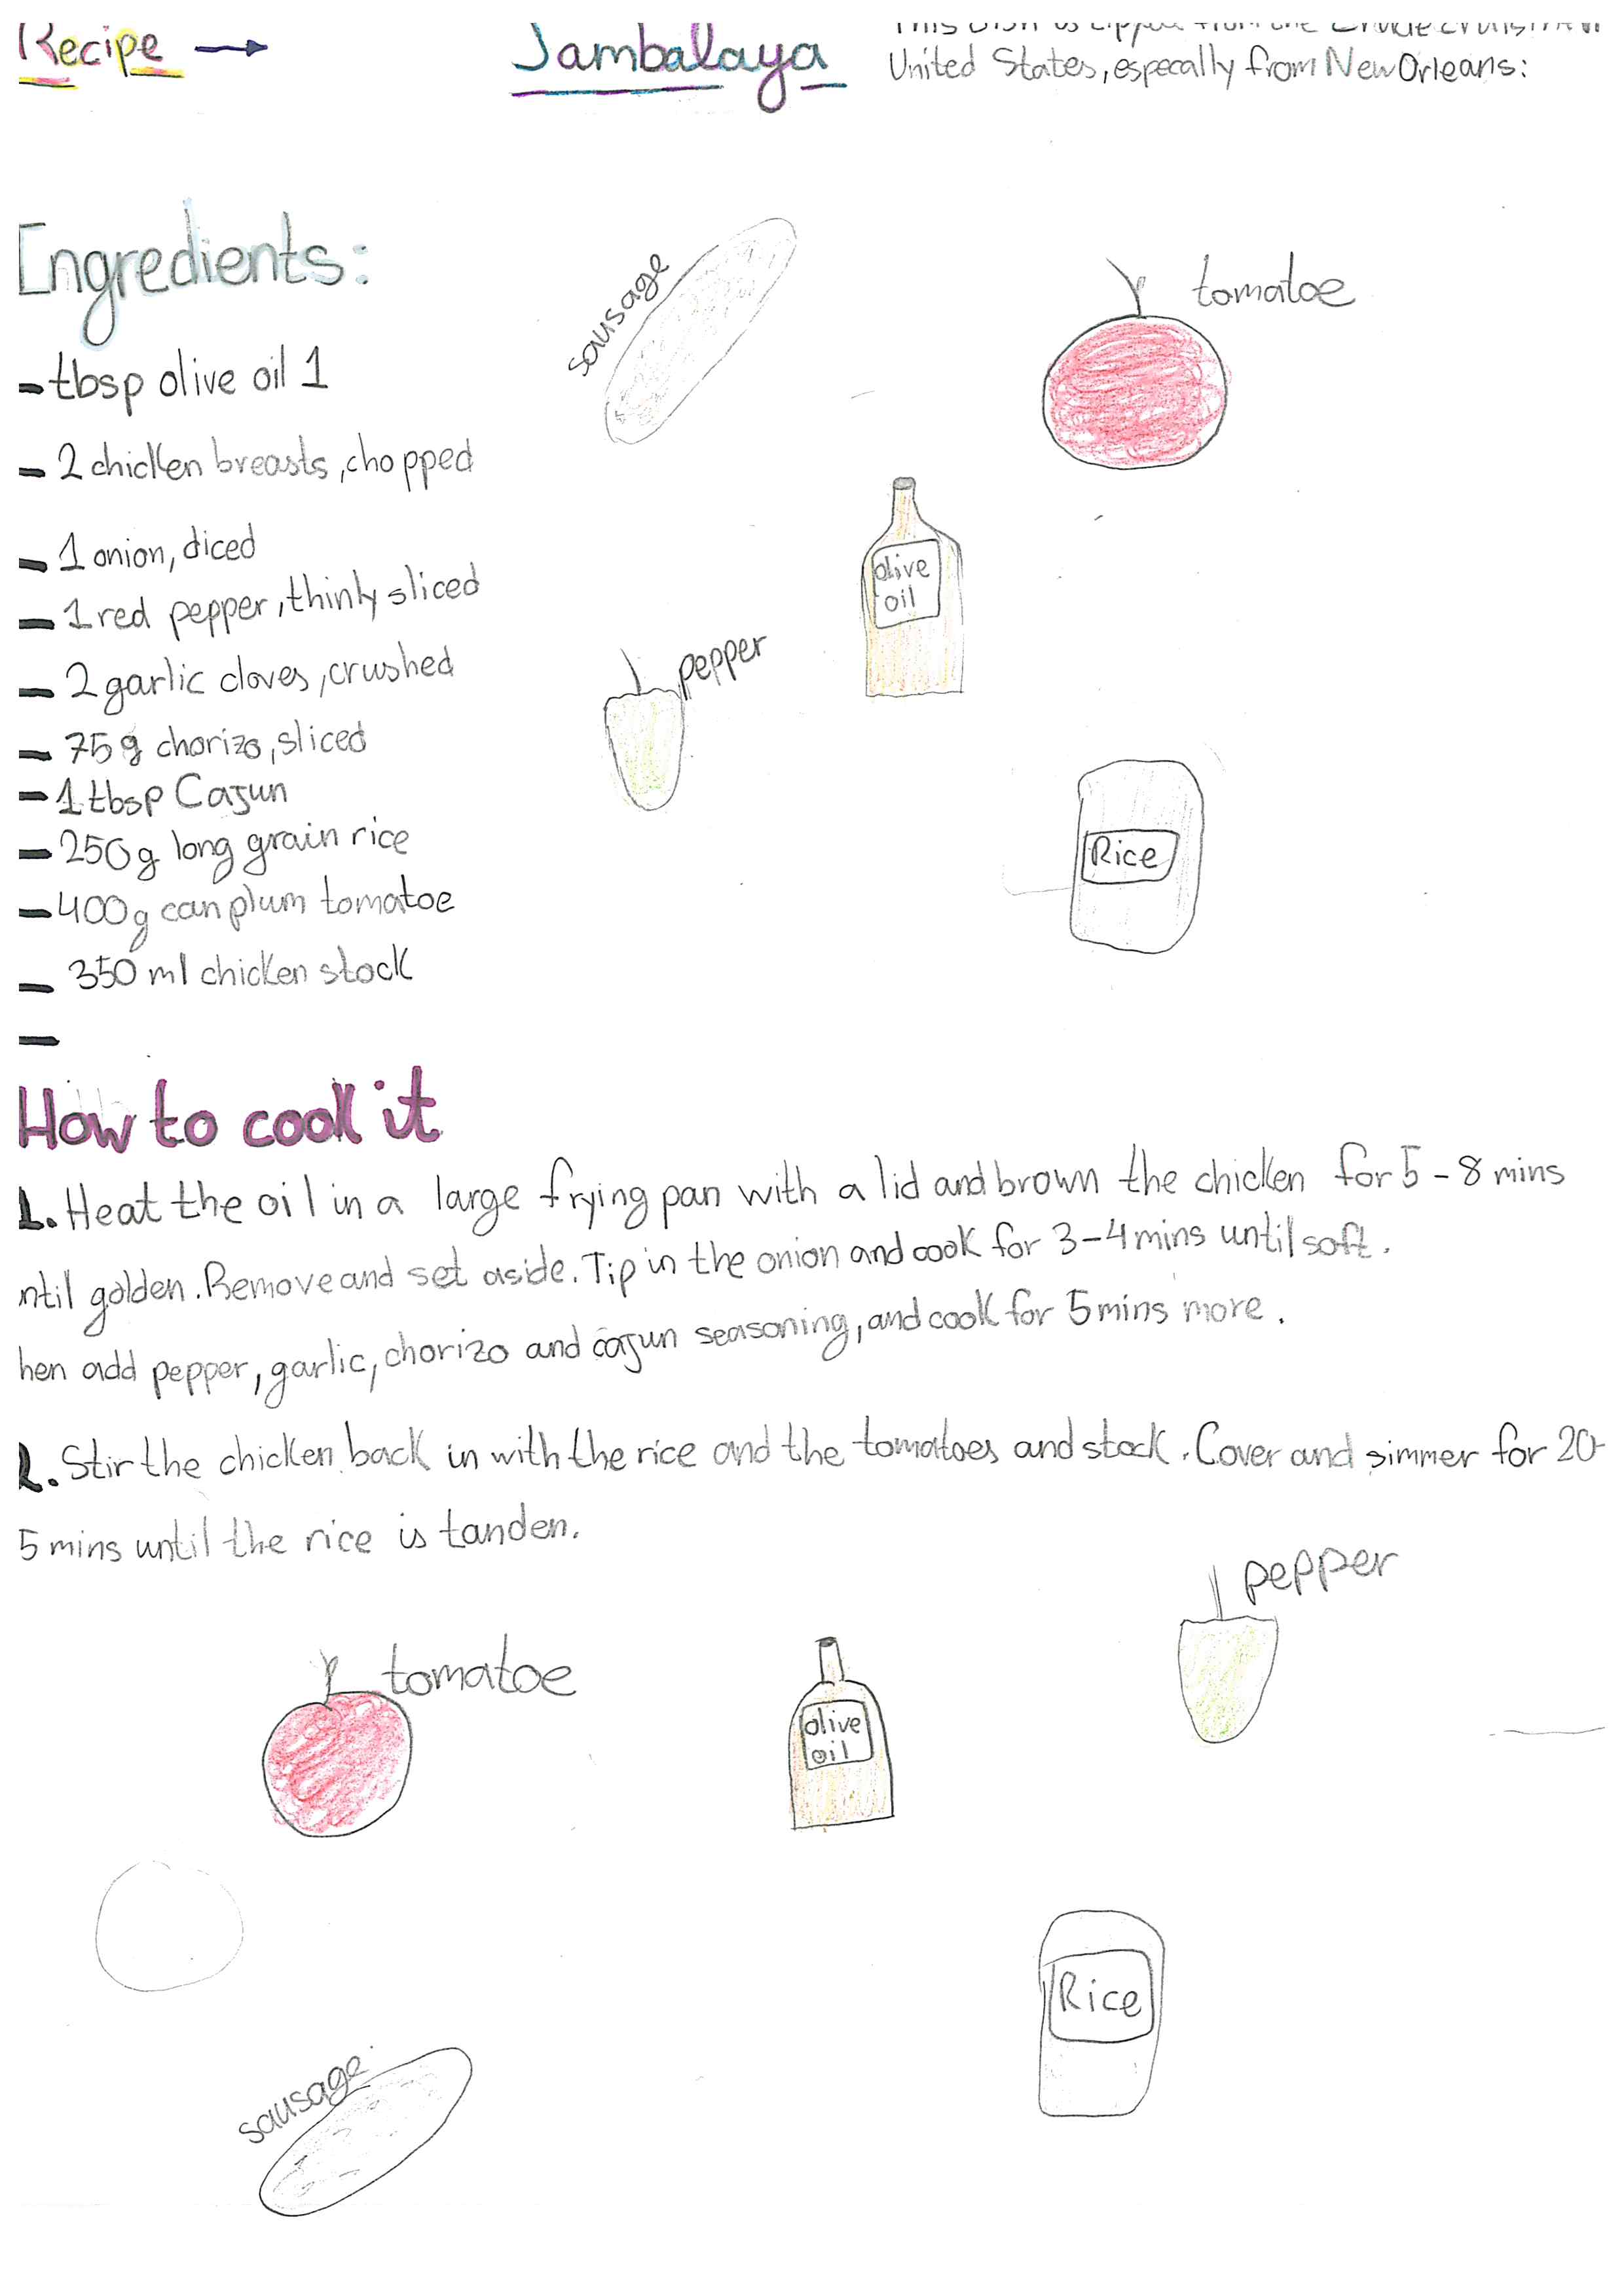 Recipe → Jambalaya
This dish is from the
United States, especally from New Orleans:
Ingredients:
sausage
tomatoe
- tbsp olive oil 1
- 2 chicken breasts, chopped
- 1 onion, diced
olive
oil
- 1 red pepper, thinly sliced
- 2 garlic cloves, crushed
pepper
- 75 g chorizo, sliced
- 1 tbsp Cajun
- 250g long grain rice
Rice
- 400g can plum tomatoe
- 350 ml chicken stock
-
How to cook it
1. Heat the oil in a large frying pan with a lid and brown the chicken for 5-8 mins
ntil golden. Remove and set aside. Tip in the onion and cook for 3-4 mins until soft.
hen add pepper, garlic, chorizo and cajun seasoning, and cook for 5 mins more.
2. Stir the chicken back in with the rice and the tomatoes and stock. Cover and simmer for 20-
5 mins until the rice is tanden.
pepper
tomatoe
olive
oil
Rice
sausage